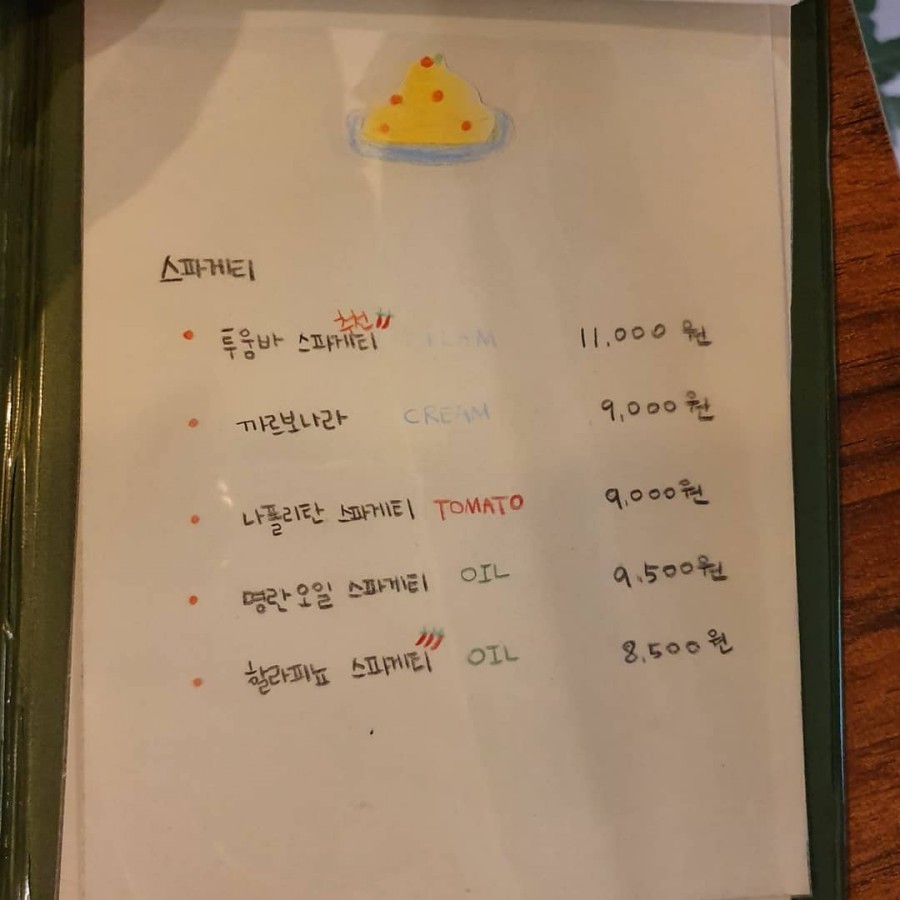 스파게티
추천
투움바 스파게티 CREAM 11,000 원
까르보나라 CREAM 9,000 원
나폴리탄 스파게티 TOMATO 9,000원
명란오일 스파게티 OIL 9,500원
할라피뇨 스파게티 OIL 8,500원